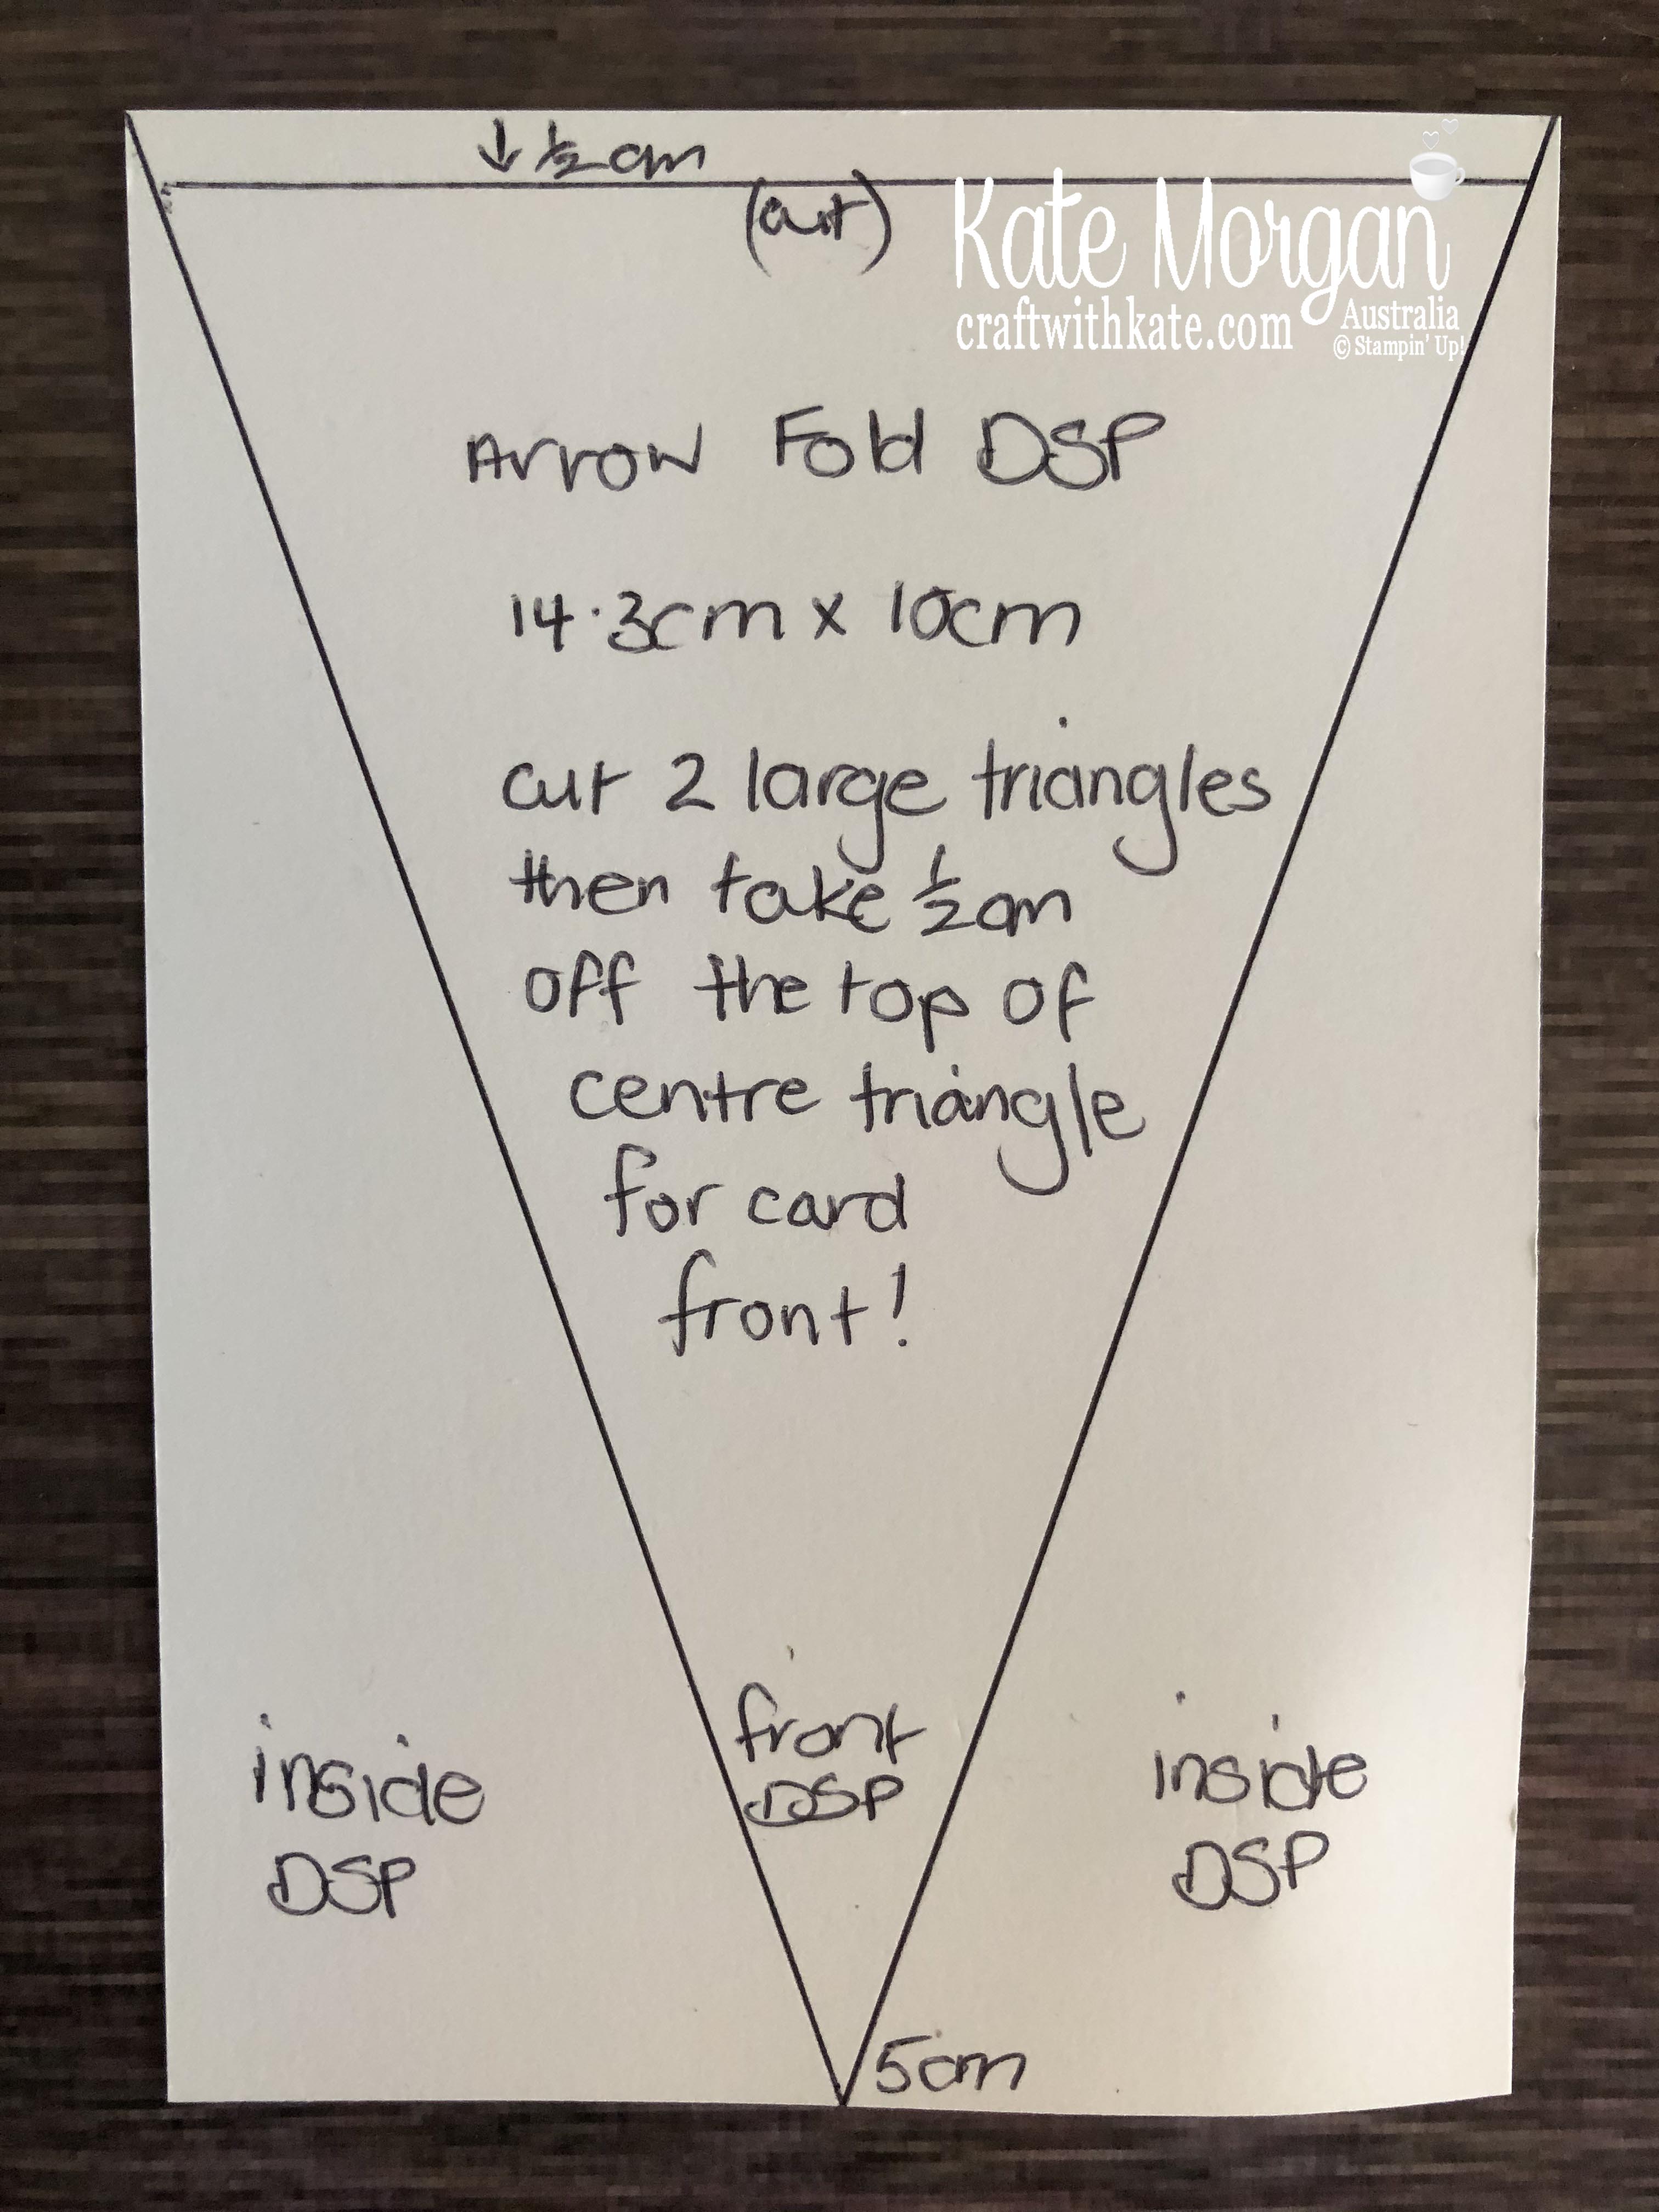 ↓ ½ cm
(cut)
Kate Morgan
craftwithkate.com Australia
© Stampin' Up!
Arrow Fold DSP
14.3cm x 10cm
cut 2 large triangles
then take ½cm
off the top of
centre triangle
for card
front!
front
DSP
inside
DSP
inside
DSP
5cm